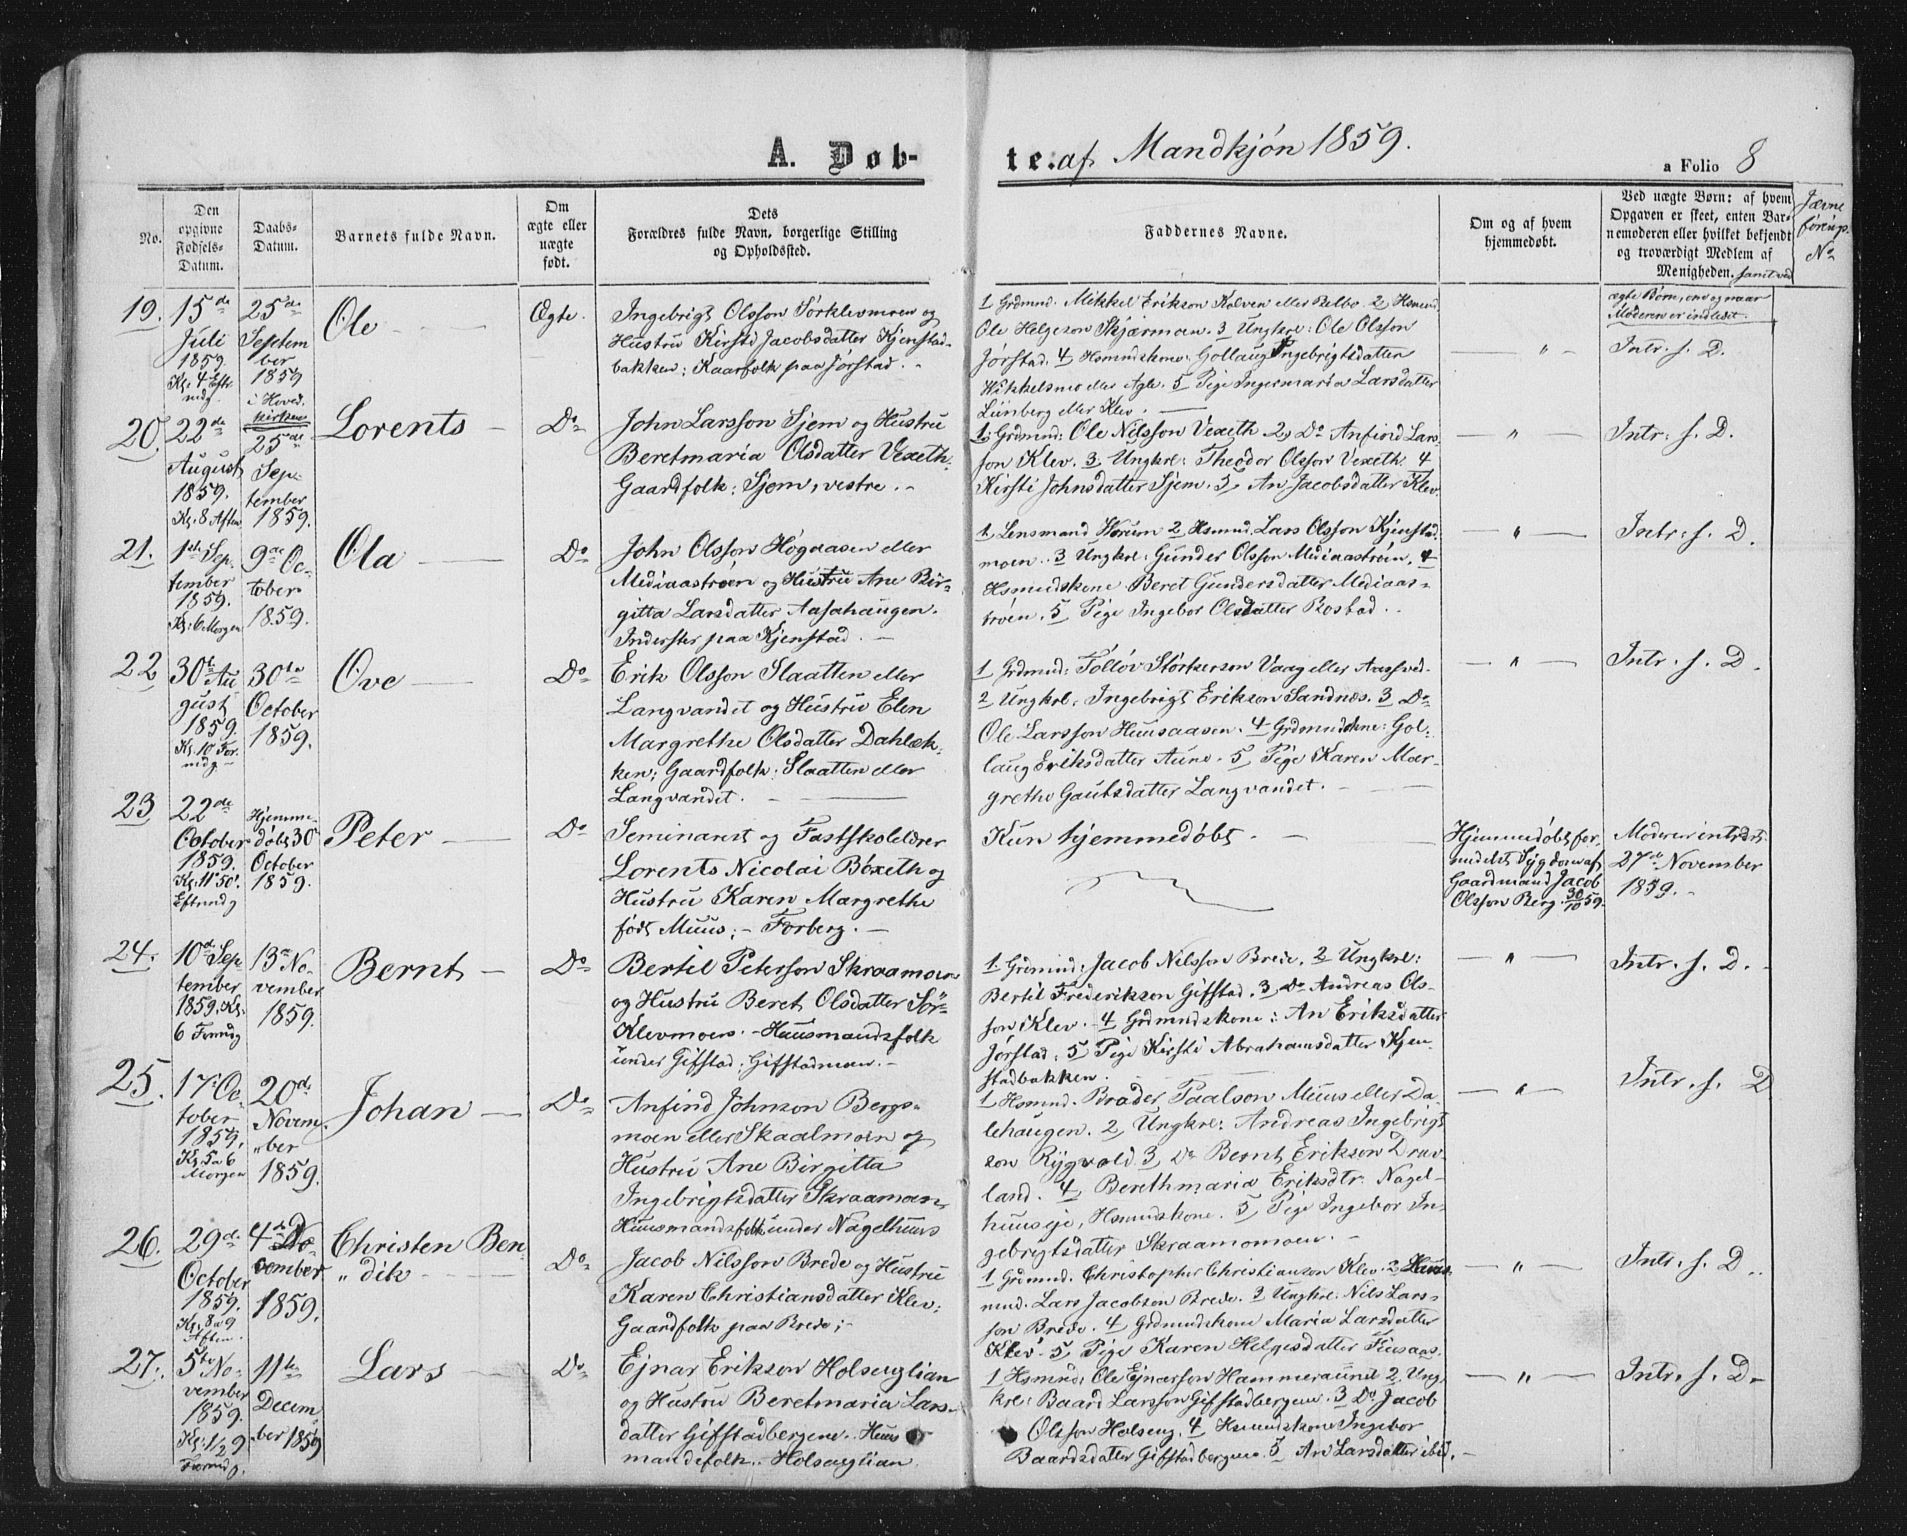 A. Døb-
te. af Mandkjön 1859.
a Folio 8
No.
Den opgivne Fødsels-Datum.
Daabs-Datum.
Barnets fulde Navn.
Om ægte eller uægte født.
Dets
Forældres fulde Navn, borgerlige Stilling
og Opholdssted.
Faddernes Navne.
Om og af hvem
hjemmedøbt.
Ved uægte Børn: af hvem
Opgaven er skeet, enten Bar-
nemoderen eller hvilket bekjendt
og troværdigt Medlem af
Menigheden. samt ved
ægte Børn, om og naar
Moderen er indledet.
Jævnføringsp. No
19.
15de
Juli
1859.
Kl. 4 Eft
mdg.
25de
Septem
ber
1859
i Hoved.
kirken
Ole
Ægte.
Ingebrigt Olsson Sörklevmoen og
Hustru Kirsti Jacobsdatter Kjenstad-
bakken; Kaarfolk paa Jörstad.
1 Grdmnd. Mikkel Erikson Kolven eller Relbo. 2 Hsmnd.
Ole Helgeson Skjærmoen. 3 Ungkrl: Ole Olsson
Jörstad. 4 Hsmndskone: Gollaug Ingebrigtsdatter
Wikkelsmo eller Agle. 5 Pige Ingermaria Larsdatter
Lünberg eller Klev.
"
Intr. s. D.
20.
22de
August
1859.
Kl. 8 Aften
25de
Sep-
tember
1859.
Lorents
Do
John Larsson Sjem og Hustru
Beretmaria Olsdatter Vexeth.
Gaardfolk: Sjem, vestre.
1. Grdmnd: Ole Nilsson Vexeth 2, Do Anfind Lars-
son Klev. 3, Ungkrl: Theodor Olsson Vexeth 4
Kirsti Johnsdatter Sjem. 5, An Jacobsdatter Klev.
"
Intr: s. D.
21.
1ste Sep
tember
1859.
Kl. 6 Morgen
9de Oc-
tober
1859.
Ola
Do
John Olsson Högaasen eller
Mediaaströen og Hustru Ane Bir-
gitta Larsdatter Aasahaugen.
Inderster paa Kjenstad.
1, Lensmand Horum 2 Hsmnd. Lars Olsson Kjenstad
moen. 3 Ungkrl: Gunder Olsson Mediaaströen. 4
Hsmndskone Beret Gundersdatter Mediaas-
tröen. 5 Pige Ingebor Olsdatter Rostad.
"
Intr: s. D.
22
30te Au
gust
1859.
Kl. 10 For
mdg.
30te
October
1859.
Ove
Do
Erik Olsson Slaatten eller
Langvandet og Hustru Elen
Margrethe Olsdatter Dahlæk-
ken; Gaardfolk: Slaatten eller
Langvandet.
1 Grdmnd: Tollöv Störkerson Vaag eller Aassved.
2 Ungkrl: Ingebrigt Erikson Sandnæs. 3 Do
Ole Larsson Huusaasen. 4 Grdmndskone: Gol-
laug Eriksdatter Aune. 5 Pige Karen Mar-
grethe Gautsdatter Langvandet.
"
Intr. s. D.
23
22de
October
1859.
Kl. 11 50'.
Eftmdg
Hjemme
döbt 30
October
1859.
Peter
Do
Seminarist og Fastskolelærer
Lorents Nicolai Böxeth og
Hustru Karen Margrethe
födt Muus; - Forberg.
Kun hjemmedöbt.
Hjemmedöbt for-
medelst Sygdom af
Gaardmand Jacob
Olsson Berg. 30/10 59.
Moderen introd.
27de November
1859.
24.
10de Sep
tember
1859. Kl.
6 Formdg
13de No-
vember
1859.
Bernt
Do
Bertil Peterson Skraamoen
og Hustru Beret Olsdatter Sör-
Klevmoen. - Huusmandsfolk
under Gifstad: Gifstadmoen.
1 Grdmnd: Jacob Nilsson Brede. 2 Ungkrl:
Bertil Frederikson Gifstad. 3, Do Andreas Ols-
son Klev. 4 Grdmndskone: An Eriksdatter
Jörstad: 5 Pige Kirsti Abrahamsdatter Kjen-
stadbakken.
"
Intr. s. D.
25.
17. Oc-
tober
1859.
Kl. 5 a 6
Morgen
20de
Novem-
ber
1859.
Johan
Do
Anfind Johnson Bergs-
moen eller Skaalmoen og
Hustru Ane Birgitta
Ingebrigtsdatter Skraamoen
Huusmandsfolk under Nagelhuus
1 Hsmnd. Brader Paalson Muus eller Da-
lehaugen. 2, Ungkrl: Andreas Ingebrigt
son Rygvold. 3, Do Bernt Erikson Drav-
land. 4 Berethmaria Eriksdtr. Nagel-
huuseje, Hsmndskone. 5, Pige Ingebor In-
gebrigtsdatter Skraamomoen.
"
Intr. s. D
26.
29de
October
1859.
Kl. 8 a 9
Aften.
4de
vember
1859.
Christen Ben
" dik
Do
Jacob Nilsson Brede og Hustru
Karen Christiansdatter Klev;
Gaardfolk paa Brede;
1 Grdmnd. Christopher Christianson Klev. 2 Huus-
mnd. Lars Jacobson Brede. 3 Ungkrl: Nils Lars-
son Brede. 4 Grdmndskone Maria Larsdatter
Klev. 5, Pige Karen Helgesdatter Fiusaas.
"
Intr. s. D.
27.
5te No-
vember
1859.
Kl. 1/2 9
Formdg.
11te
Decem
ber 1859
Lars
Do
Ejnar Erikson Holsenglian
og Hustru Beretmaria Lars-
datter Gifstadbergene. Huus
mandsfolk. - Holsenglian.
1 Hsmnd: Ole Ejnarson Hammeraunet 2, Ung
krl: Baard Larsson Gifstadbergene. 3 Do Jacob
Olsson Holseng. 4, Hsmndskone Ingebor
Baardsdatter Gifstadbergene. 5 An Larsdatter ibid.
"
Intr. s. D.